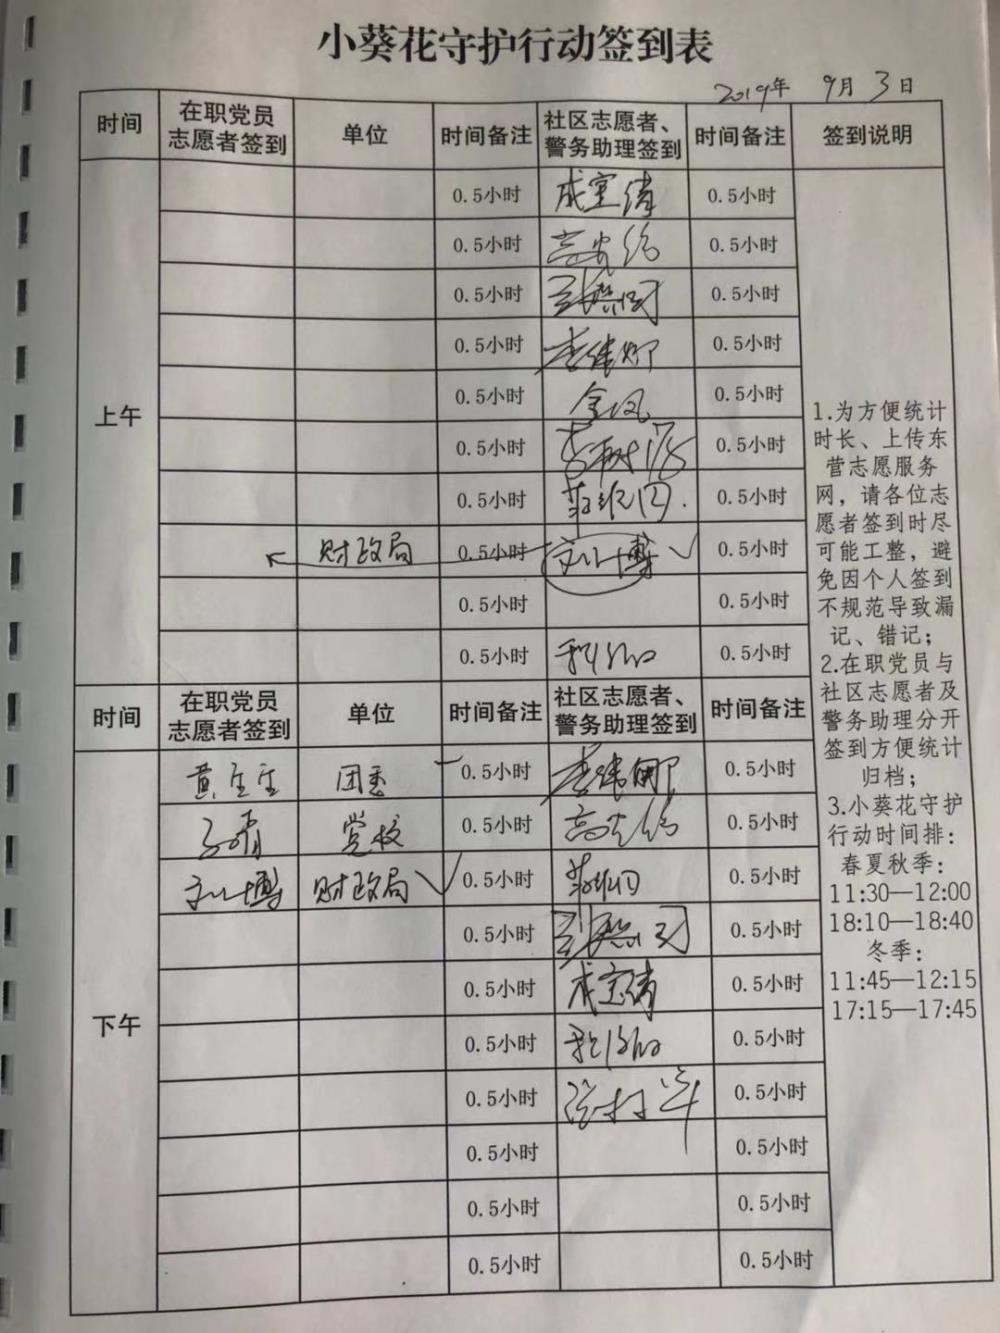 小葵花守护行动签到表
2019年 9月 3日
时间 在职党员志愿者签到 单位 时间备注 社区志愿者、警务助理签到 时间备注 签到说明
上午
0.5小时 0.5小时
0.5小时 0.5小时
0.5小时 0.5小时
0.5小时 李伟娜 0.5小时
0.5小时 金凤 0.5小时
0.5小时 0.5小时
0.5小时 0.5小时
财政局 0.5小时 刘博 0.5小时
0.5小时 0.5小时
0.5小时 0.5小时
时间 在职党员志愿者签到 单位 时间备注 社区志愿者、警务助理签到 时间备注
下午
团委 0.5小时 李伟娜 0.5小时
党校 0.5小时 0.5小时
刘博 财政局 0.5小时 0.5小时
0.5小时 0.5小时
0.5小时 0.5小时
0.5小时 0.5小时
0.5小时 0.5小时
0.5小时 0.5小时
0.5小时 0.5小时
0.5小时 0.5小时
1.为方便统计
时长、上传东
营志愿服务
网，请各位志
愿者签到时尽
可能工整，避
免因个人签到
不规范导致漏
记、错记；
2.在职党员与
社区志愿者及
警务助理分开
签到方便统计
归档；
3.小葵花守护
行动时间排：
春夏秋季：
11:30—12:00
18:10—18:40
冬季：
11:45—12:15
17:15—17:45